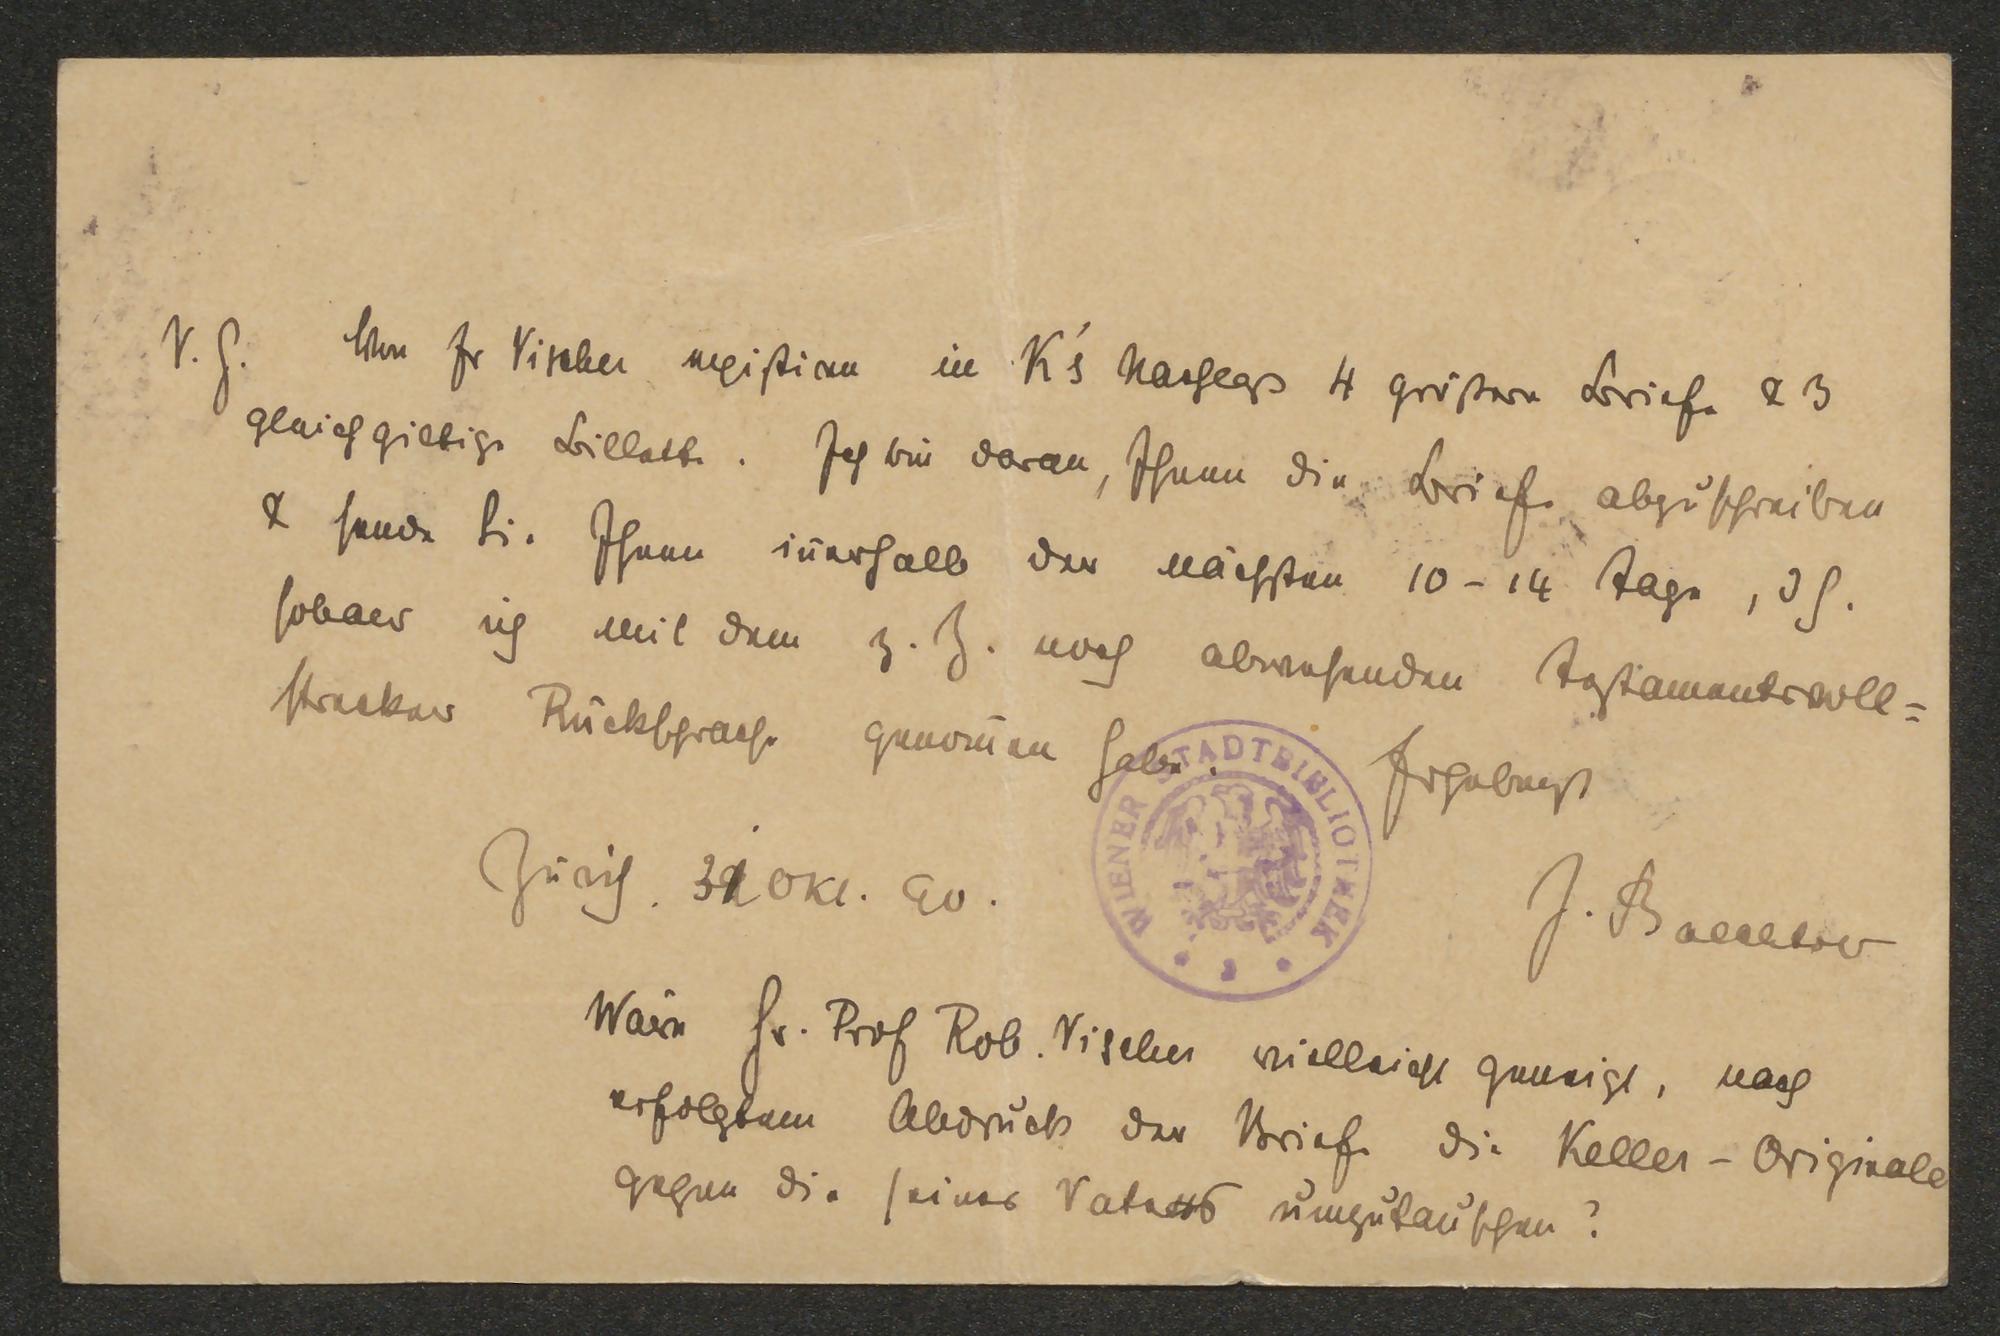 V. H. Von Fr Vischer existiren in K's Nachlass 4 grössere Briefe & 3
gleichgiltige Billette. Ich bin daran, Ihnen die Briefe abzuschreiben
& sende Sie Ihnen iñerhalb der nächsten 10-14 Tage, d h.
sobald ich mit dem z. Z. noch abwesenden Testamentsvoll=
strecker Rücksprache genom̄en habe. Ergebenst
Zürich. 31 Okt. 90.
J. Baechtold
Wäre Hr. Prof Rob. Vischer vielleicht geneigt, nach
erfolgtem Abdruck der Briefe die Keller-Originale
gegen die seines Vaters umzutauschen?
WIENER STADTBIBLIOTHEK